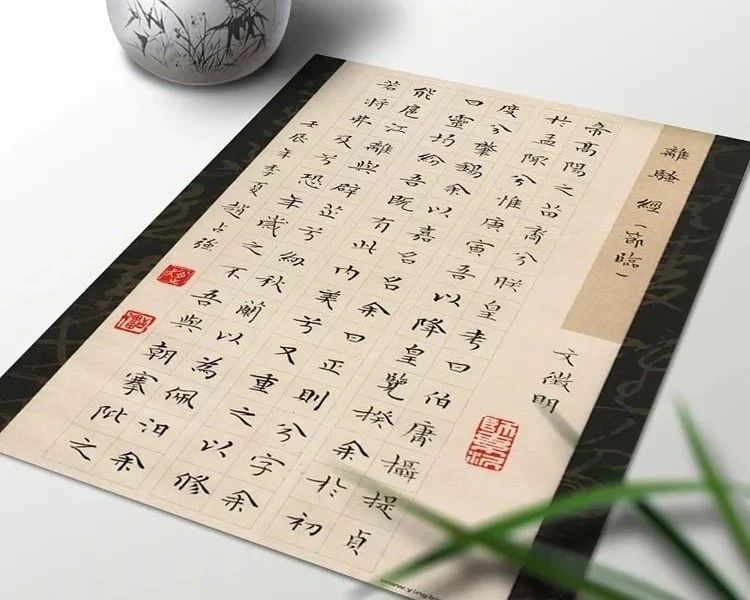 離騷經(節臨)
文徵明
帝高陽之苗裔兮朕皇考曰伯庸攝提貞
於孟陬兮惟庚寅吾以降皇覽揆余於初
度兮肇錫余以嘉名名余曰正則兮字余
曰靈均紛吾既有此內美兮又重之以修
能扈江離與辟芷兮紉秋蘭以為佩汩余
若將弗及兮恐年歲之不吾與朝搴阰之
壬辰年季夏趙占強